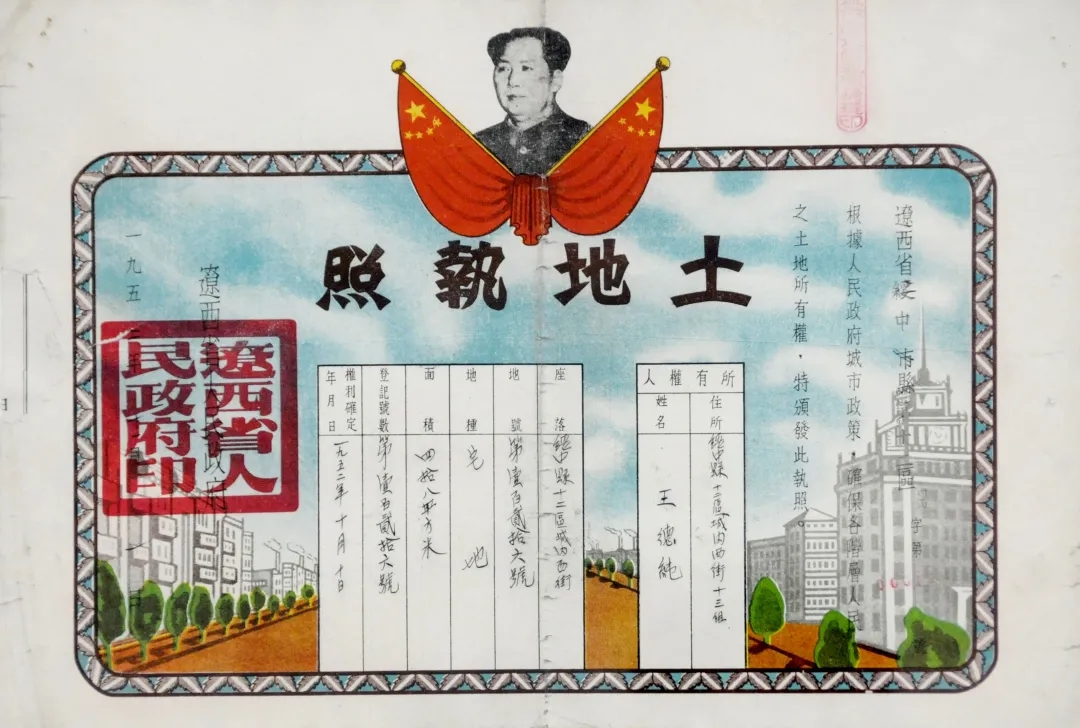 土地執照
遼西省綏中市縣
區
字第
根據人民政府城市政策，確保各階層人民
之土地所有權，特頒發此執照。
所有權人
住所
綏中縣十二區城內西街十三組
姓名
王德純
座落
綏中縣十二區城內西街
地號
第壹百貳拾六號
地種
宅地
面積
四拾八平方米
登記號數
第壹百貳拾六號
權利確定年月日
一九五二年十月十日
遼西省人民政府
一九五二年
遼西省人民政府印